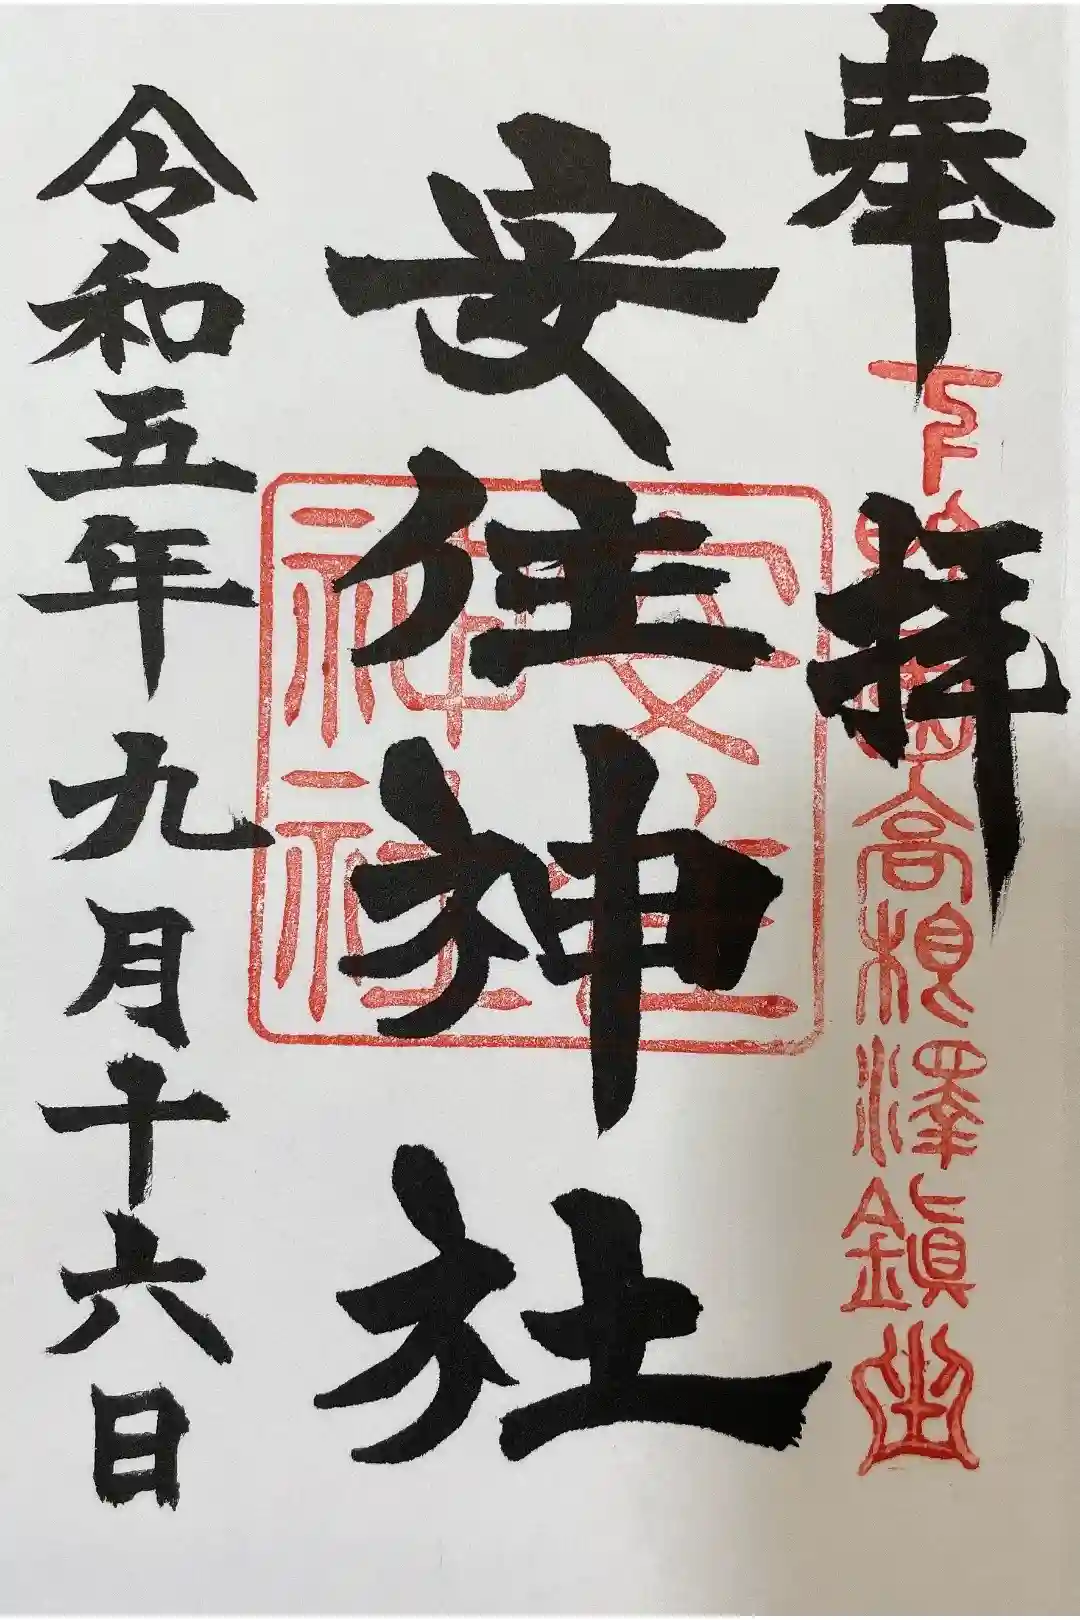 奉拝
下野國高根澤鎮坐
安住神社
安住神社
令和五年九月十六日